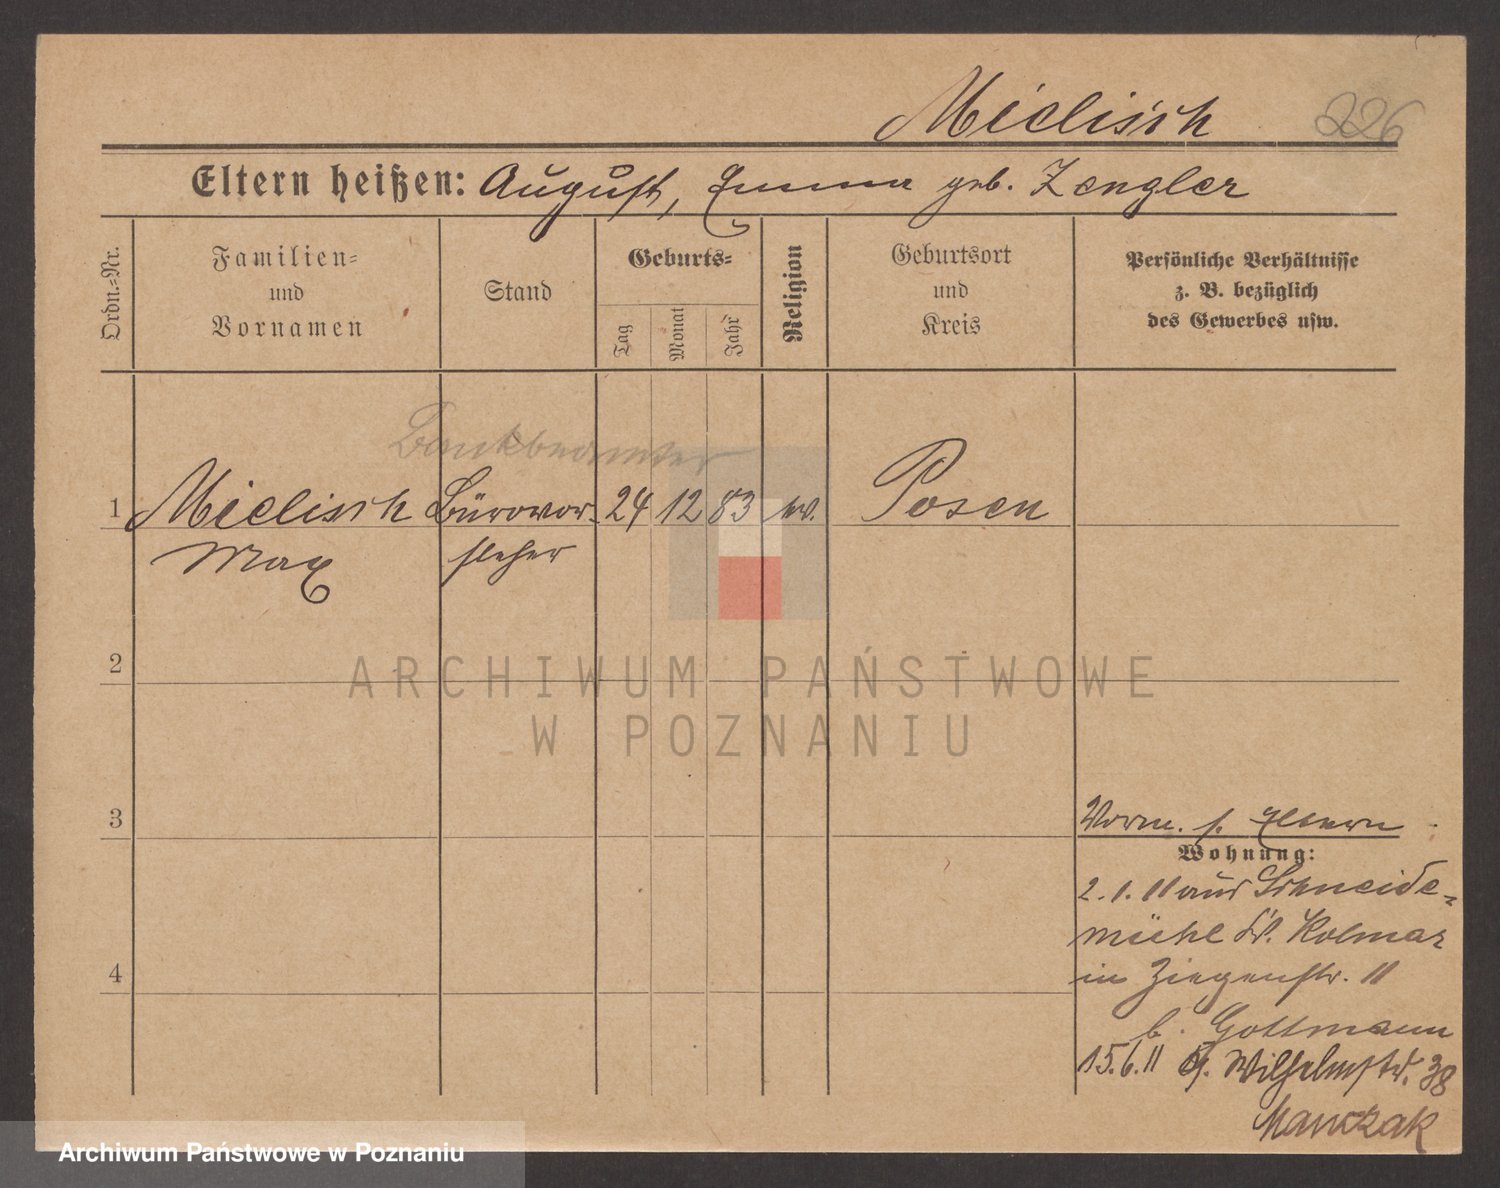 Mielisch 226
Eltern heißen: August, Emma geb. Zengler
Ordn.-Nr.
Familien-
und
Vornamen
Stand
Geburts-
Tag
Monat
Jahr
Religion
Geburtsort
und
Kreis
Persönliche Verhältnisse
z. B. bezüglich
des Gewerbes usw.
Bankbeamter
1 Mielisch Bürovor- 24 12 83 ev. Posen
Max steher
2
ARCHIWUM PAŃSTWOWE
W POZNANIU
3
Vorm. s. Eltern
Wohnung:
2.1.11 aus Schneide-
mühl Kr. Kolmar
4
in Ziegenstr. 11
b. Gottmann
15.6.11 Wilhelmstr. 38
Manczak
Archiwum Państwowe w Poznaniu